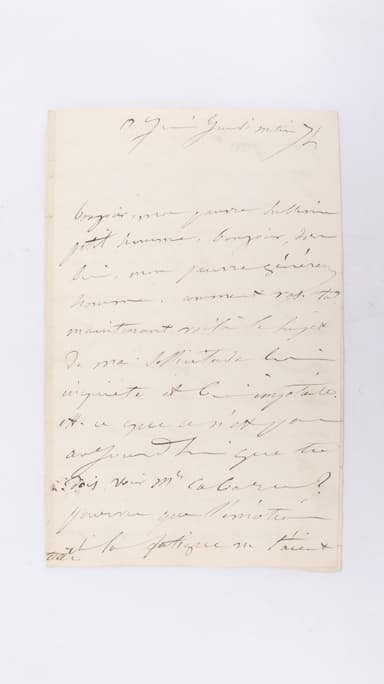 Juin Jeudi matin
bonjour, mon pauvre
petit homme, bonjour,
mon pauvre généreux
homme. comment vas-tu
maintenant voilà le sujet
de ma sollicitude bien
inquiète et bien
est-ce que ce n'est pas
aujourd'hui que tu
dois voir Mr
pourvu que l'émotion
et la fatigue ne t'aient